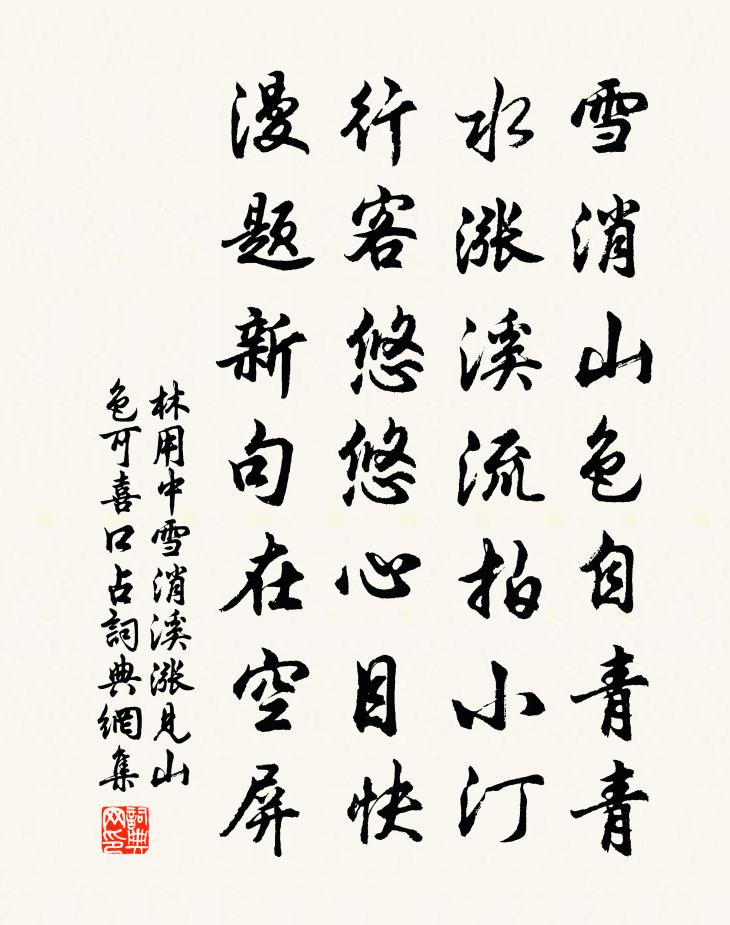 雪消山色自青青
水漲溪流拍小汀
行客悠悠心目快
漫題新句在空屏
林用中雪消溪漲見山
色可喜口占詞典網集
詞典
网印